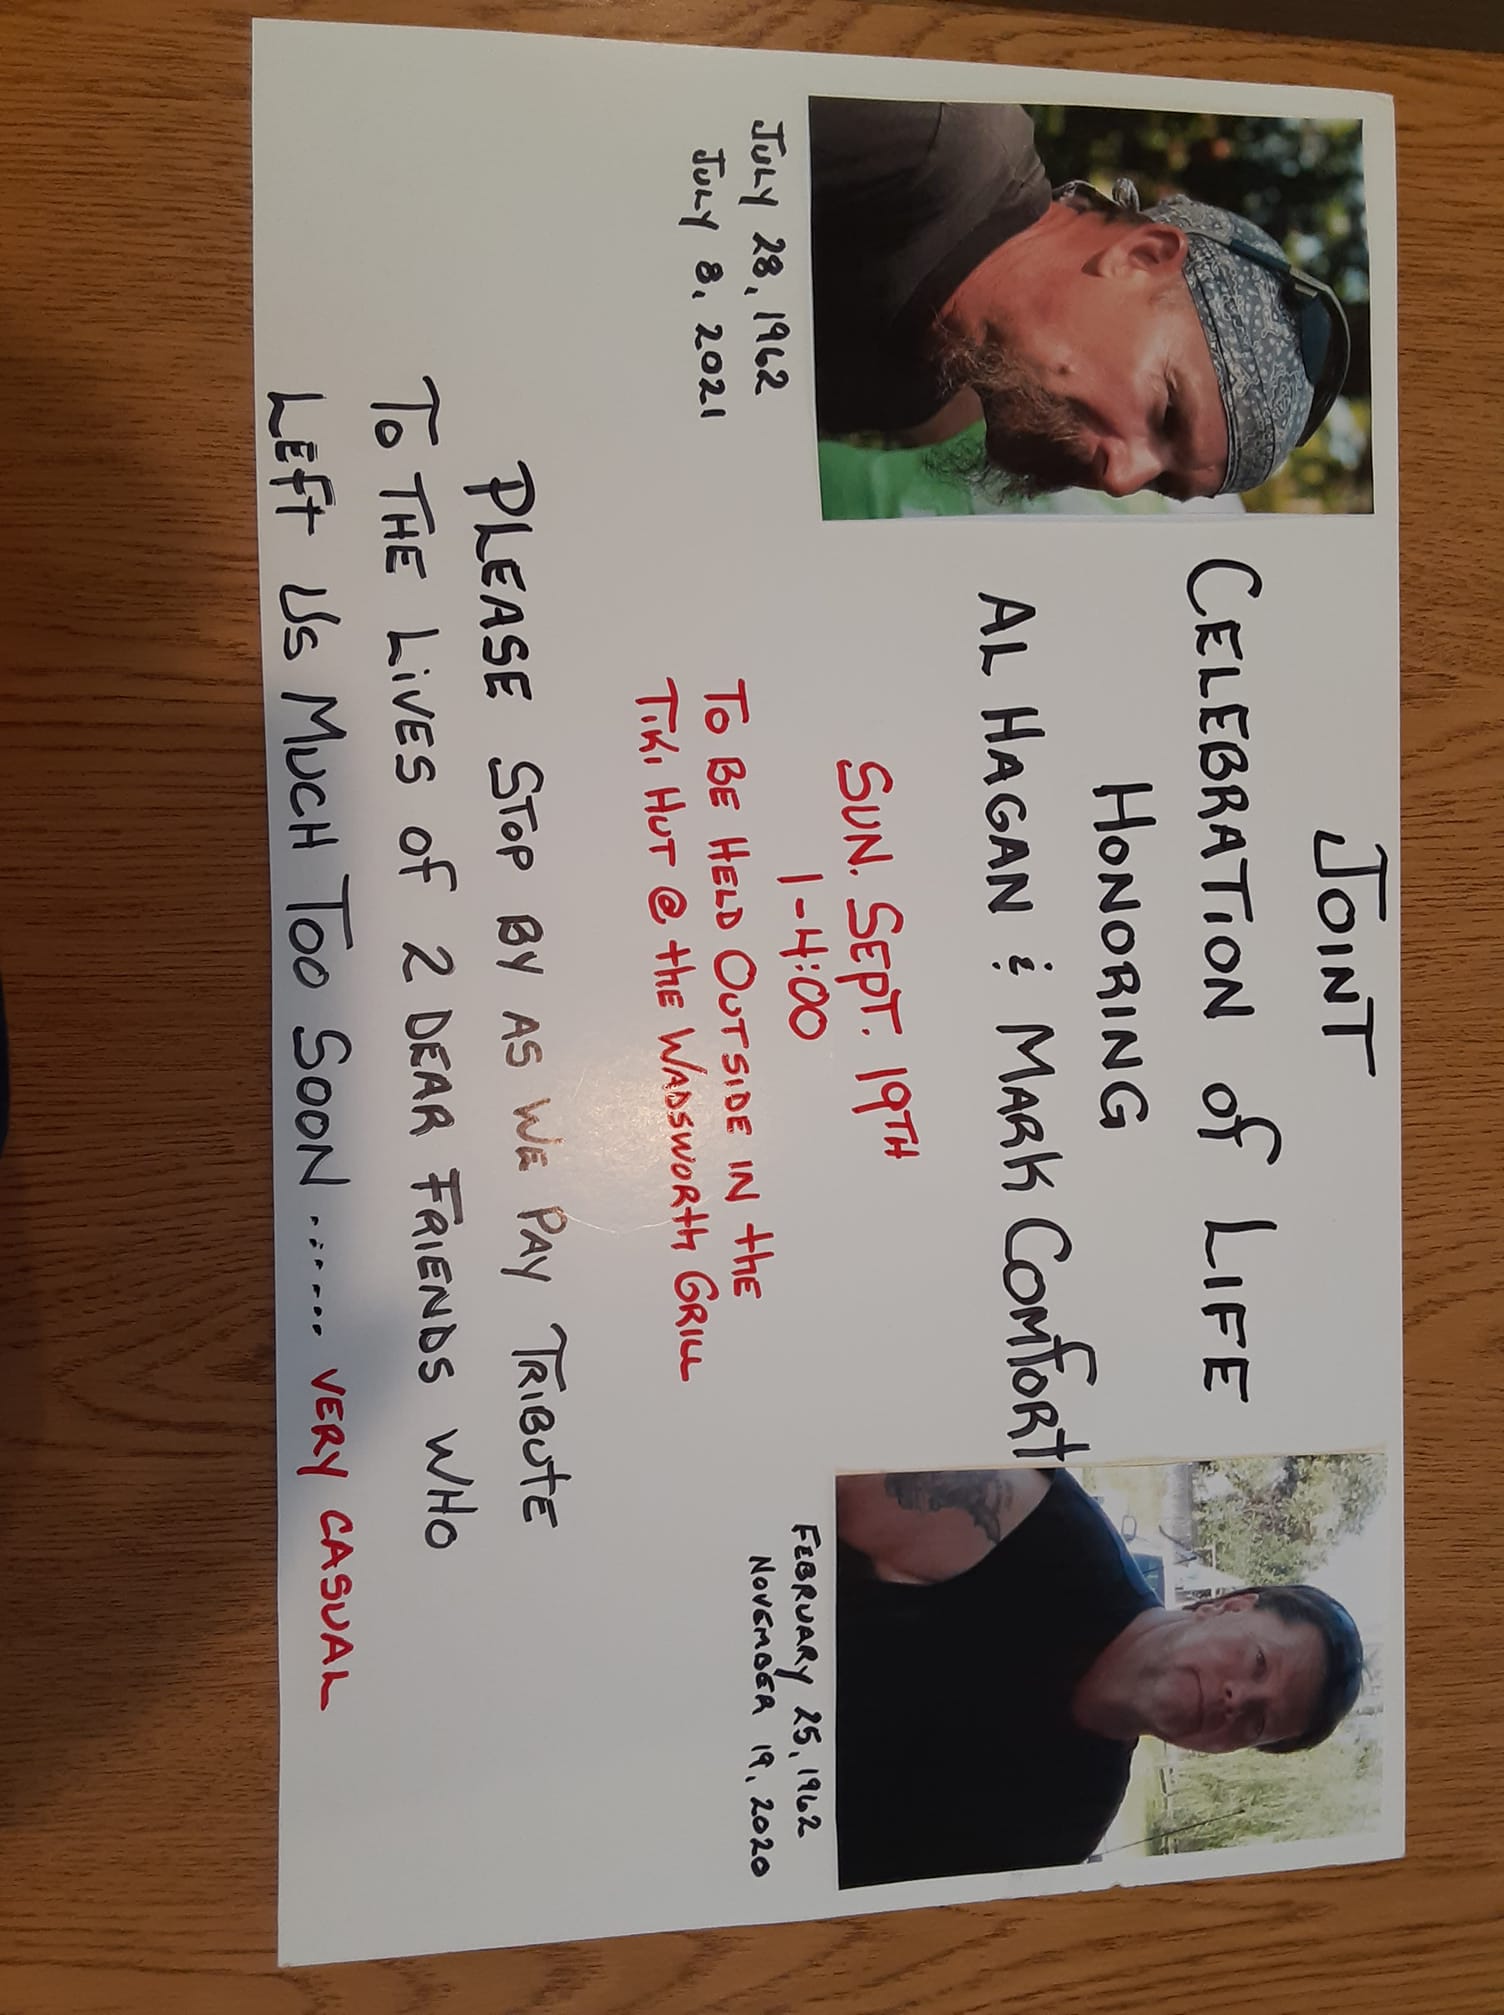 JOINT
CELEBRATION of LIFE
HONORING
AL HAGAN & MARK COMFORT
JULY 28, 1962
JULY 8, 2021
FEBRUARY 25, 1962
NOVEMBER 19, 2020
SUN. SEPT. 19TH
1-4:00
TO BE HELD OUTSIDE IN the
TIKI HUT @ the WADSWORTH GRILL
PLEASE STOP BY AS WE PAY TRIBUTE
TO THE LIVES OF 2 DEAR FRIENDS WHO
LEFT US MUCH TOO SOON ....... VERY CASUAL